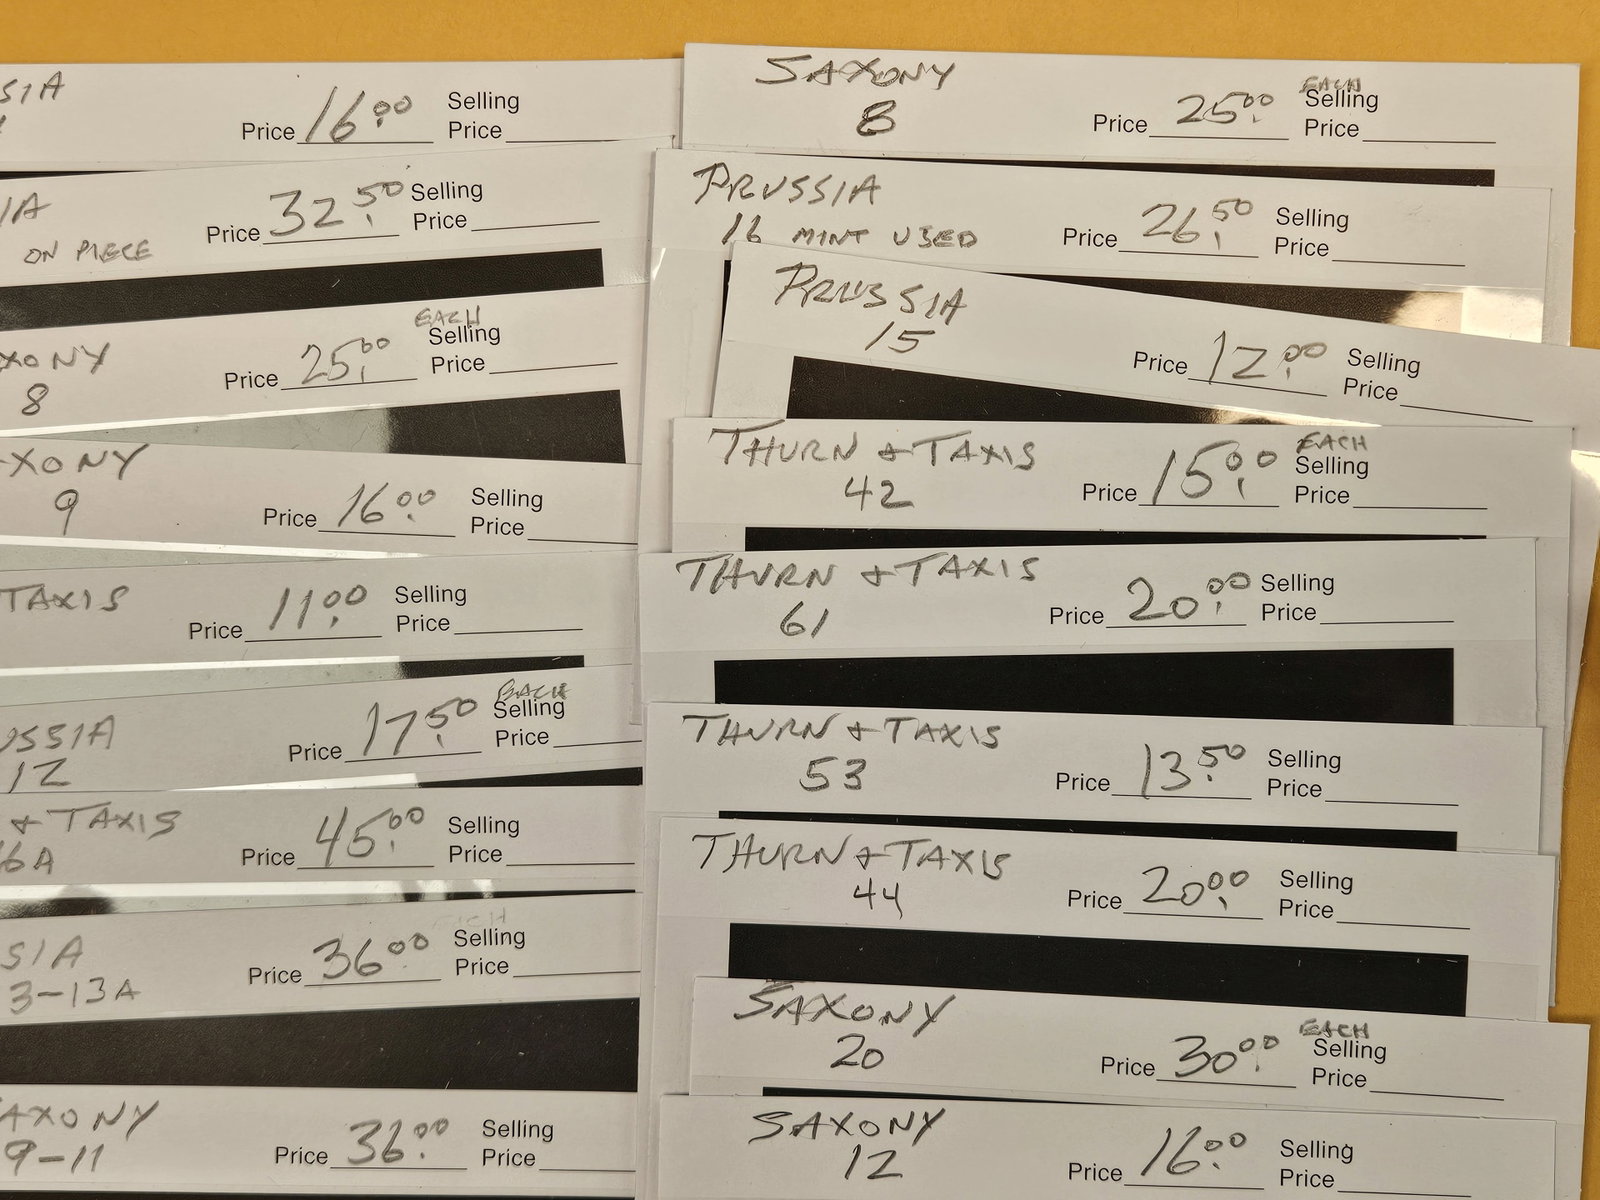 SIA
Price 16.00 Selling
Price
IA
Price 32.50 Selling
Price
ON PIECE
EACH
XONY
Price 25.00 Selling
Price
8
XONY
9
Price 16.00 Selling
Price
TAXIS
Price 11.00 Selling
Price
EACH
USSIA
12
Price 17.50 Selling
Price
& TAXIS
6A
Price 45.00 Selling
Price
EACH
SIA
3-13A
Price 36.00 Selling
Price
AXONY
9-11
Price 36.00 Selling
Price
SAXONY
8
EACH
Price 25.00 Selling
Price
PRUSSIA
16 MINT USED
Price 26.50 Selling
Price
PRUSSIA
15
Price 12.00 Selling
Price
THURN & TAXIS
42
EACH
Price 15.00 Selling
Price
THURN & TAXIS
61
Price 20.00 Selling
Price
THURN & TAXIS
53
Price 13.50 Selling
Price
THURN & TAXIS
44
Price 20.00 Selling
Price
SAXONY
20
EACH
Price 30.00 Selling
Price
SAXONY
12
Price 16.00 Selling
Price